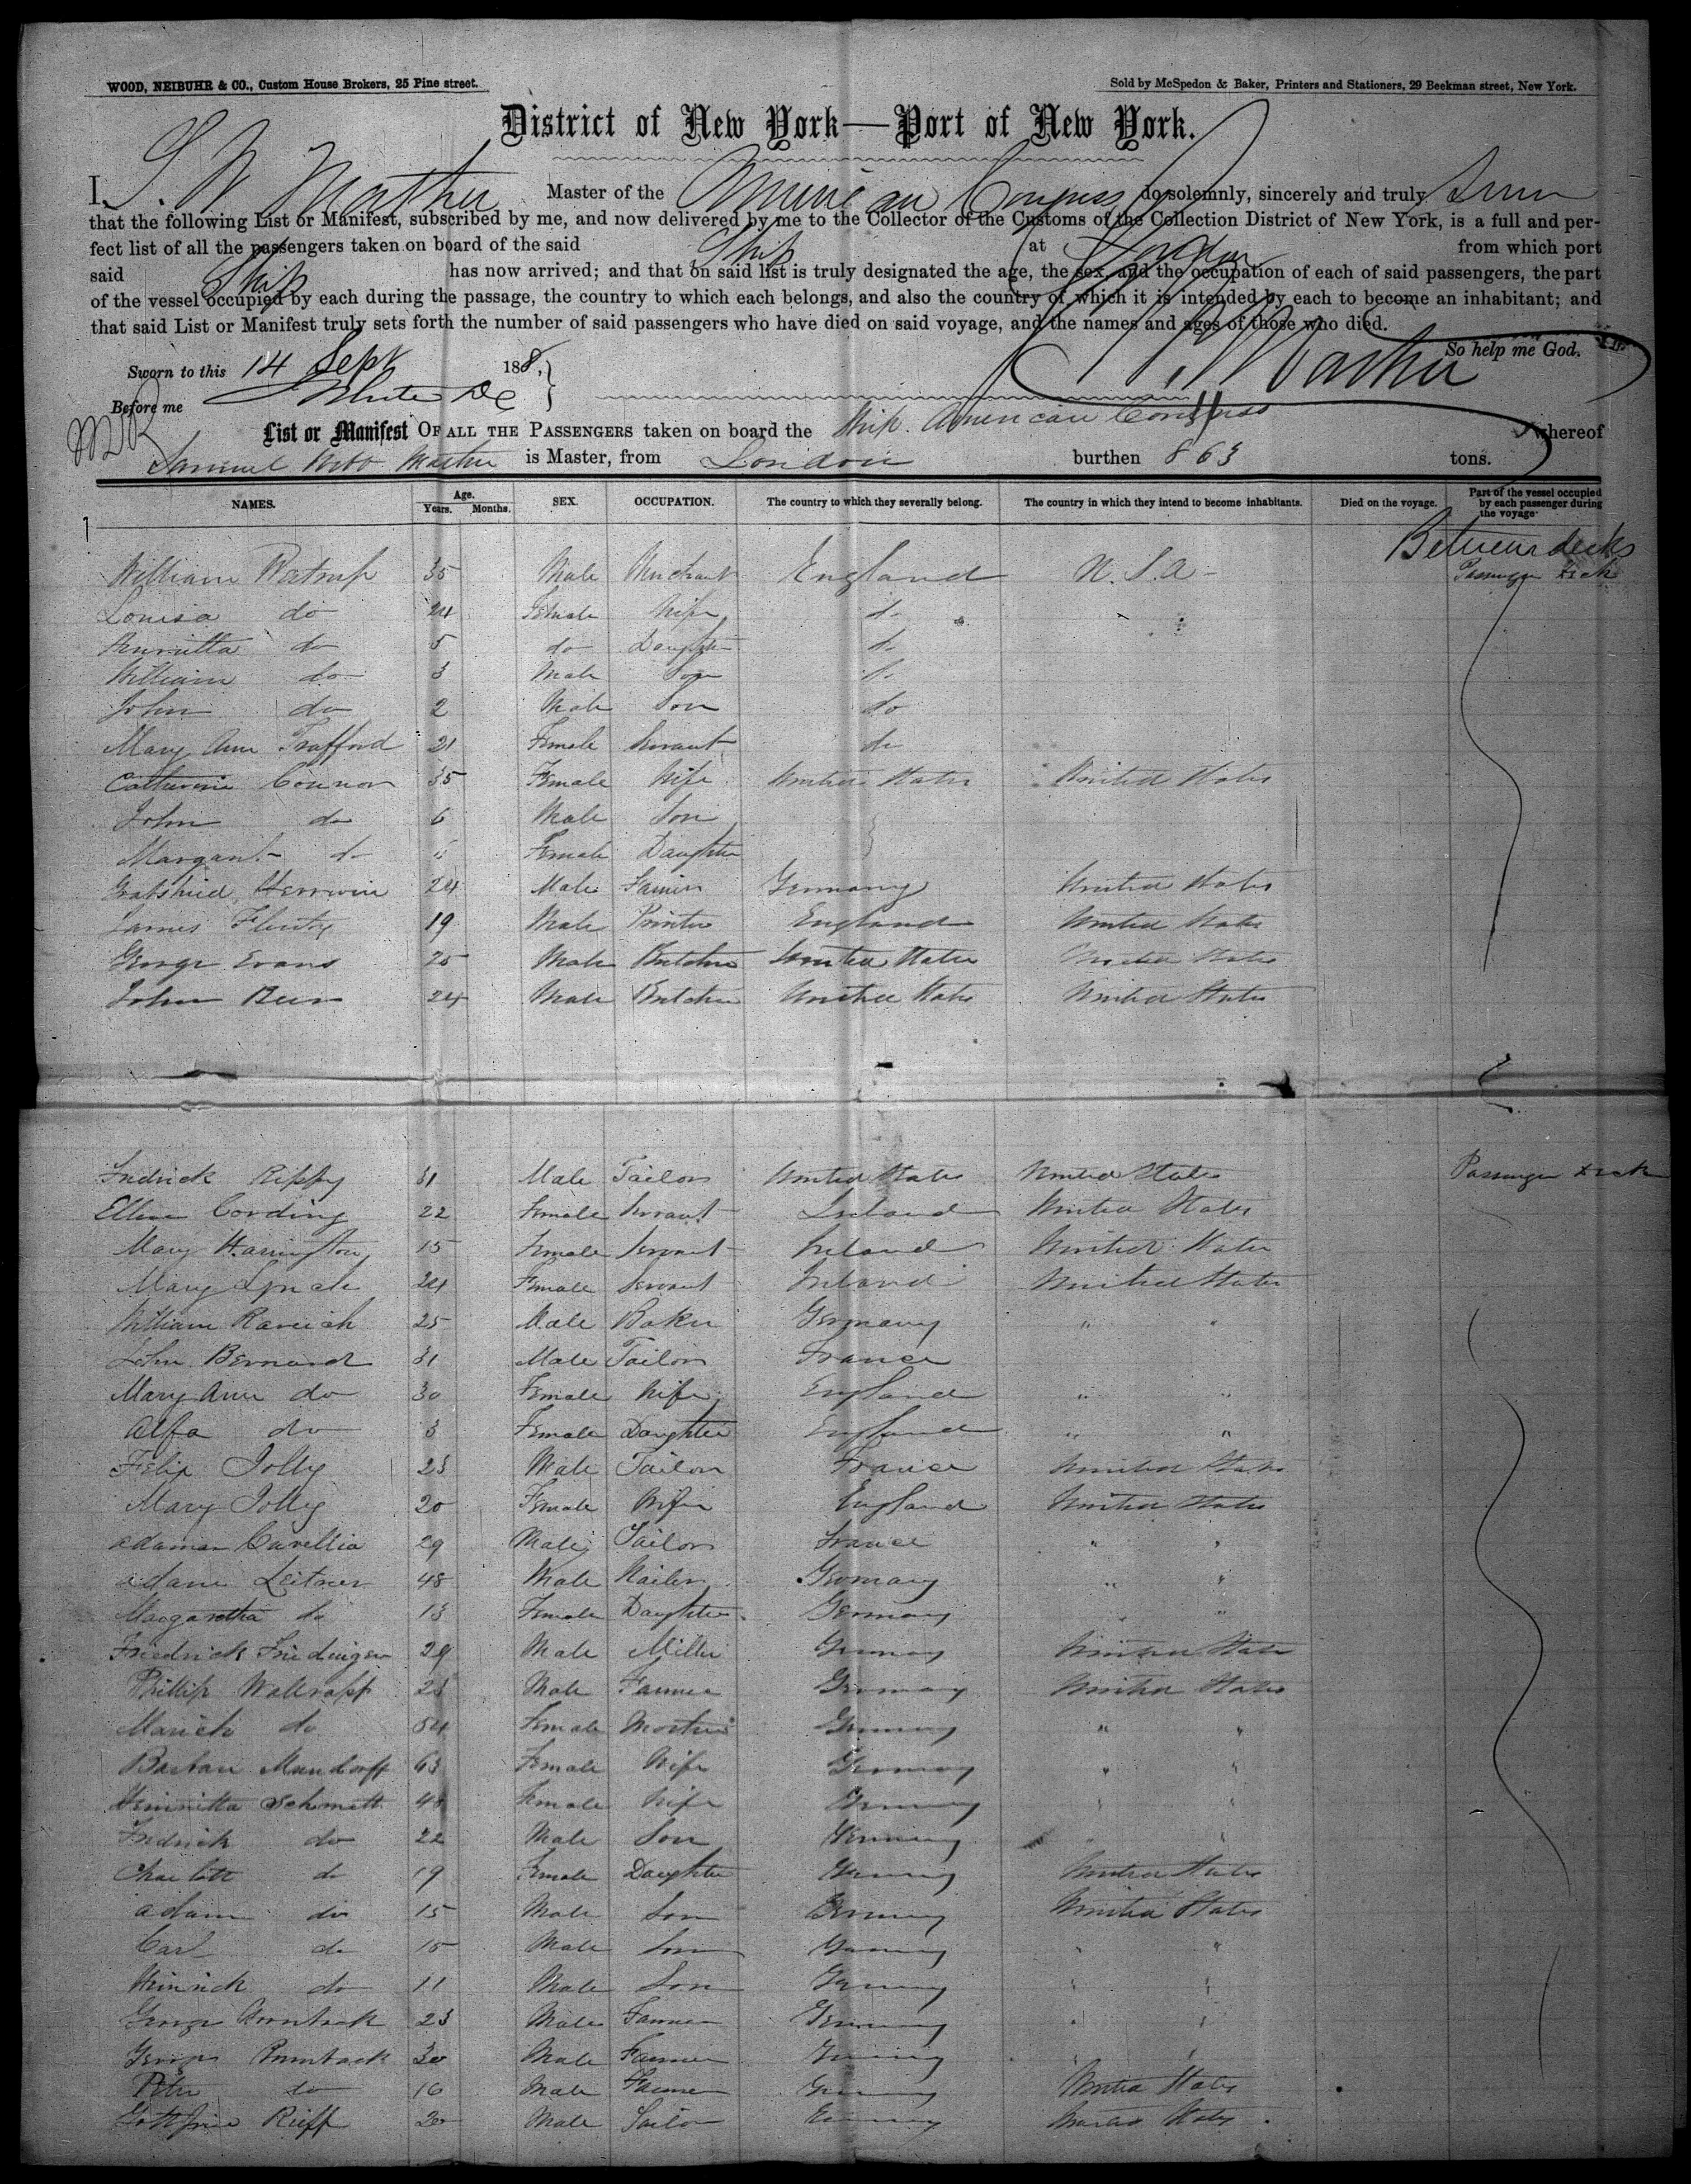 WOOD, NEIBUHR & CO., Custom House Brokers, 25 Pine street.
Sold by McSpedon & Baker, Printers and Stationers, 29 Beekman street, New York.
District of New York—Port of New York.
I, S. W. Mather Master of the American Congress do solemnly, sincerely and truly
that the following List or Manifest, subscribed by me, and now delivered by me to the Collector of the Customs of the Collection District of New York, is a full and per-
fect list of all the passengers taken on board of the said Ship at London from which port
said Ship has now arrived; and that on said list is truly designated the age, the sex, and the occupation of each of said passengers, the part
of the vessel occupied by each during the passage, the country to which each belongs, and also the country of which it is intended by each to become an inhabitant; and
that said List or Manifest truly sets forth the number of said passengers who have died on said voyage, and the names and ages of those who died.
So help me God.
Sworn to this 14 Sept 18
S. W. Mather
Before me
List or Manifest OF ALL THE PASSENGERS taken on board the Ship American Congress whereof
Samuel Mather is Master, from London burthen 863 tons.
NAMES. Age. Years. Months. SEX. OCCUPATION. The country to which they severally belong. The country in which they intend to become inhabitants. Died on the voyage. Part of the vessel occupied by each passenger during the voyage.
Between decks
William 35 Male Merchant England U.S.A Passenger deck
Louisa do 24 Female Wife do
Henrietta do 5 do Daughter do
William do 3 Male Son do
John do 2 Male Son do
Mary Ann Trafford 21 Female Servant do
Catherine Connor 35 Female Wife United States United States
John do 6 Male Son
Margaret do Female Daughter
Herrwin 24 Male Farmer Germany United States
James 19 Male Printer England United States
George Evans 25 Male Butcher United States United States
John 24 Male Butcher United States United States
Fredrick Rippy 31 Male Tailor United States United States Passenger deck
Ellen Cording 22 Female Servant Ireland United States
Mary Harrington 15 Female Servant Ireland United States
Mary Lynch 24 Female Servant Ireland United States
William 25 Male Baker Germany " "
John Bernard 31 Male Tailor France
Mary Ann do 30 Female Wife England " "
Alfa do 3 Female Daughter England " "
Felix Jolly 23 Male Tailor France United States
Mary Jolly 20 Female Wife England United States
Male Tailor France " "
Adam Leitner 48 Male Nailer Germany " "
Margaretha do 13 Female Daughter Germany "
Friedrick Friedinger 29 Male Miller Germany United States
Phillip 23 Male Farmer Germany United States
do 54 Female Mother Germany " "
Mundorff 63 Female Wife Germany " "
Henrietta Schmett Female Wife Germany " "
Fredrick do 22 Male Son Germany "
Charlott do 19 Female Daughter Germany United States
Adam do 15 Male Son Germany United States
Carl do 15 Male Son Germany " "
Heinrick do 11 Male Son Germany " "
George 23 Male Farmer Germany " "
30 Male Farmer Germany " "
Peter do 16 Male Farmer Germany United States
Gottfried Reiff 20 Male Germany United States